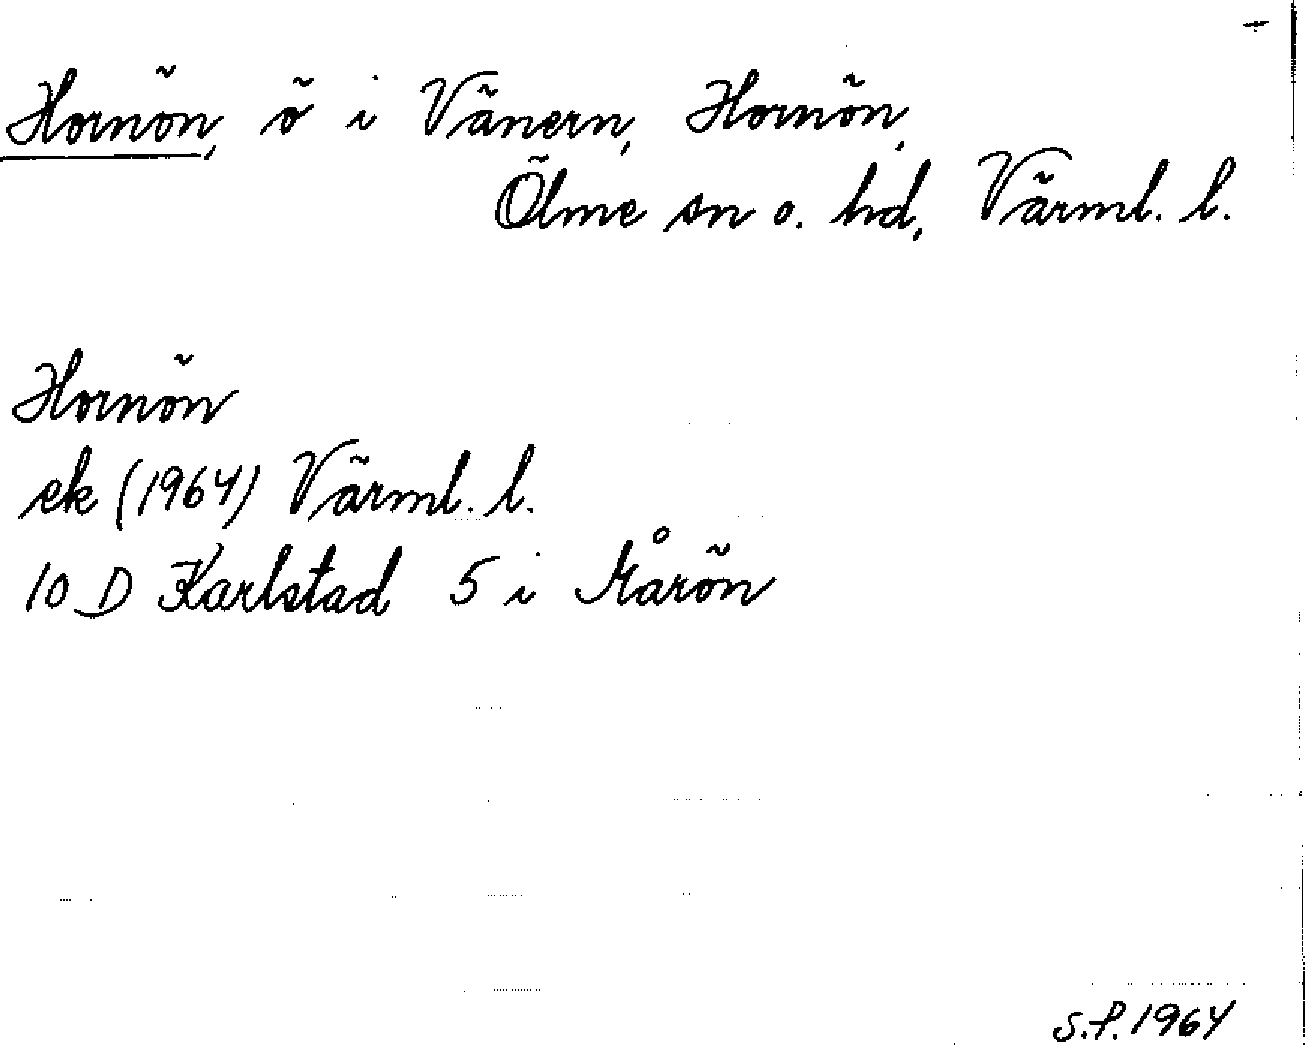 Hornön, ö i Vänern, Hornön,
Ölme sn o. hd, Värml. l.
Hornön
ek (1964) Värml. l.
10 D Karlstad 5 i Årön
s.f. 1964